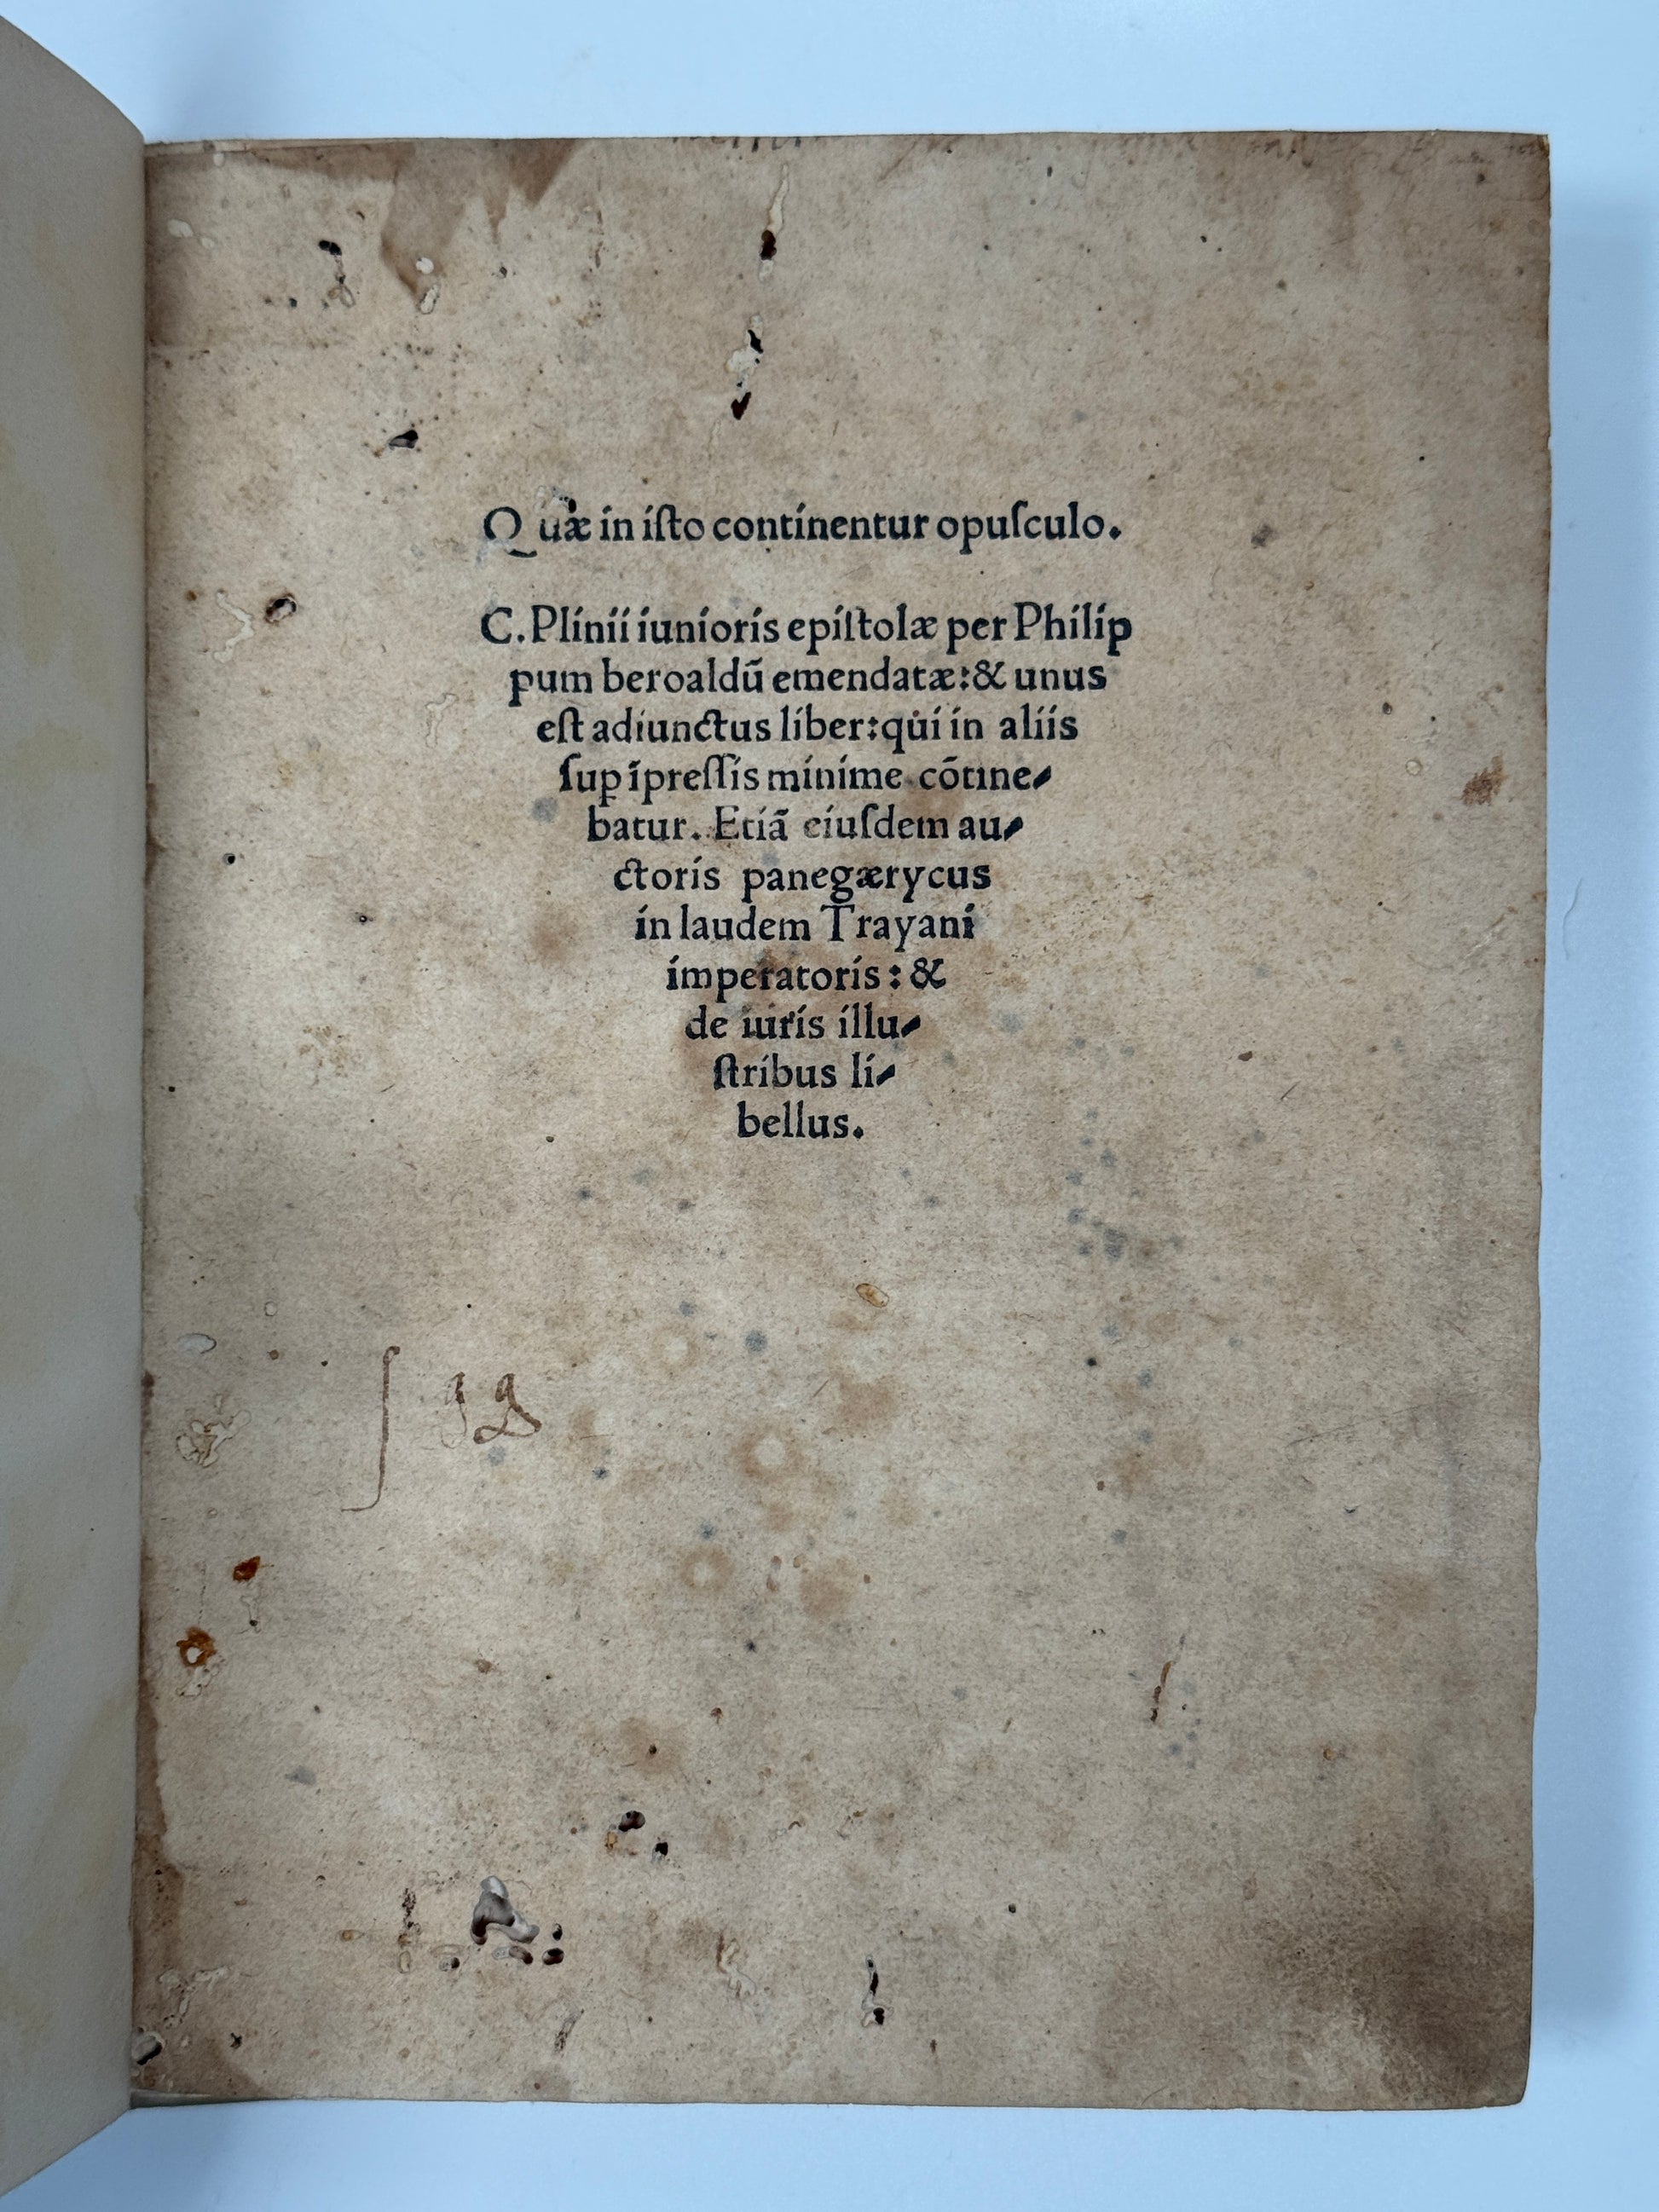 Quæ in iſto continentur opuſculo.
C. Plinii iunioris epiſtolæ per Philip
pum beroaldū emendatæ: & unus
eſt adiunctus liber: qui in aliis
ſuꝑ īpreſſis minime cōtine⸗
batur. Etiā eiuſdem au⸗
ctoris panegærycus
in laudem Trayani
imperatoris: &
de uiris illu⸗
ſtribus li⸗
bellus.